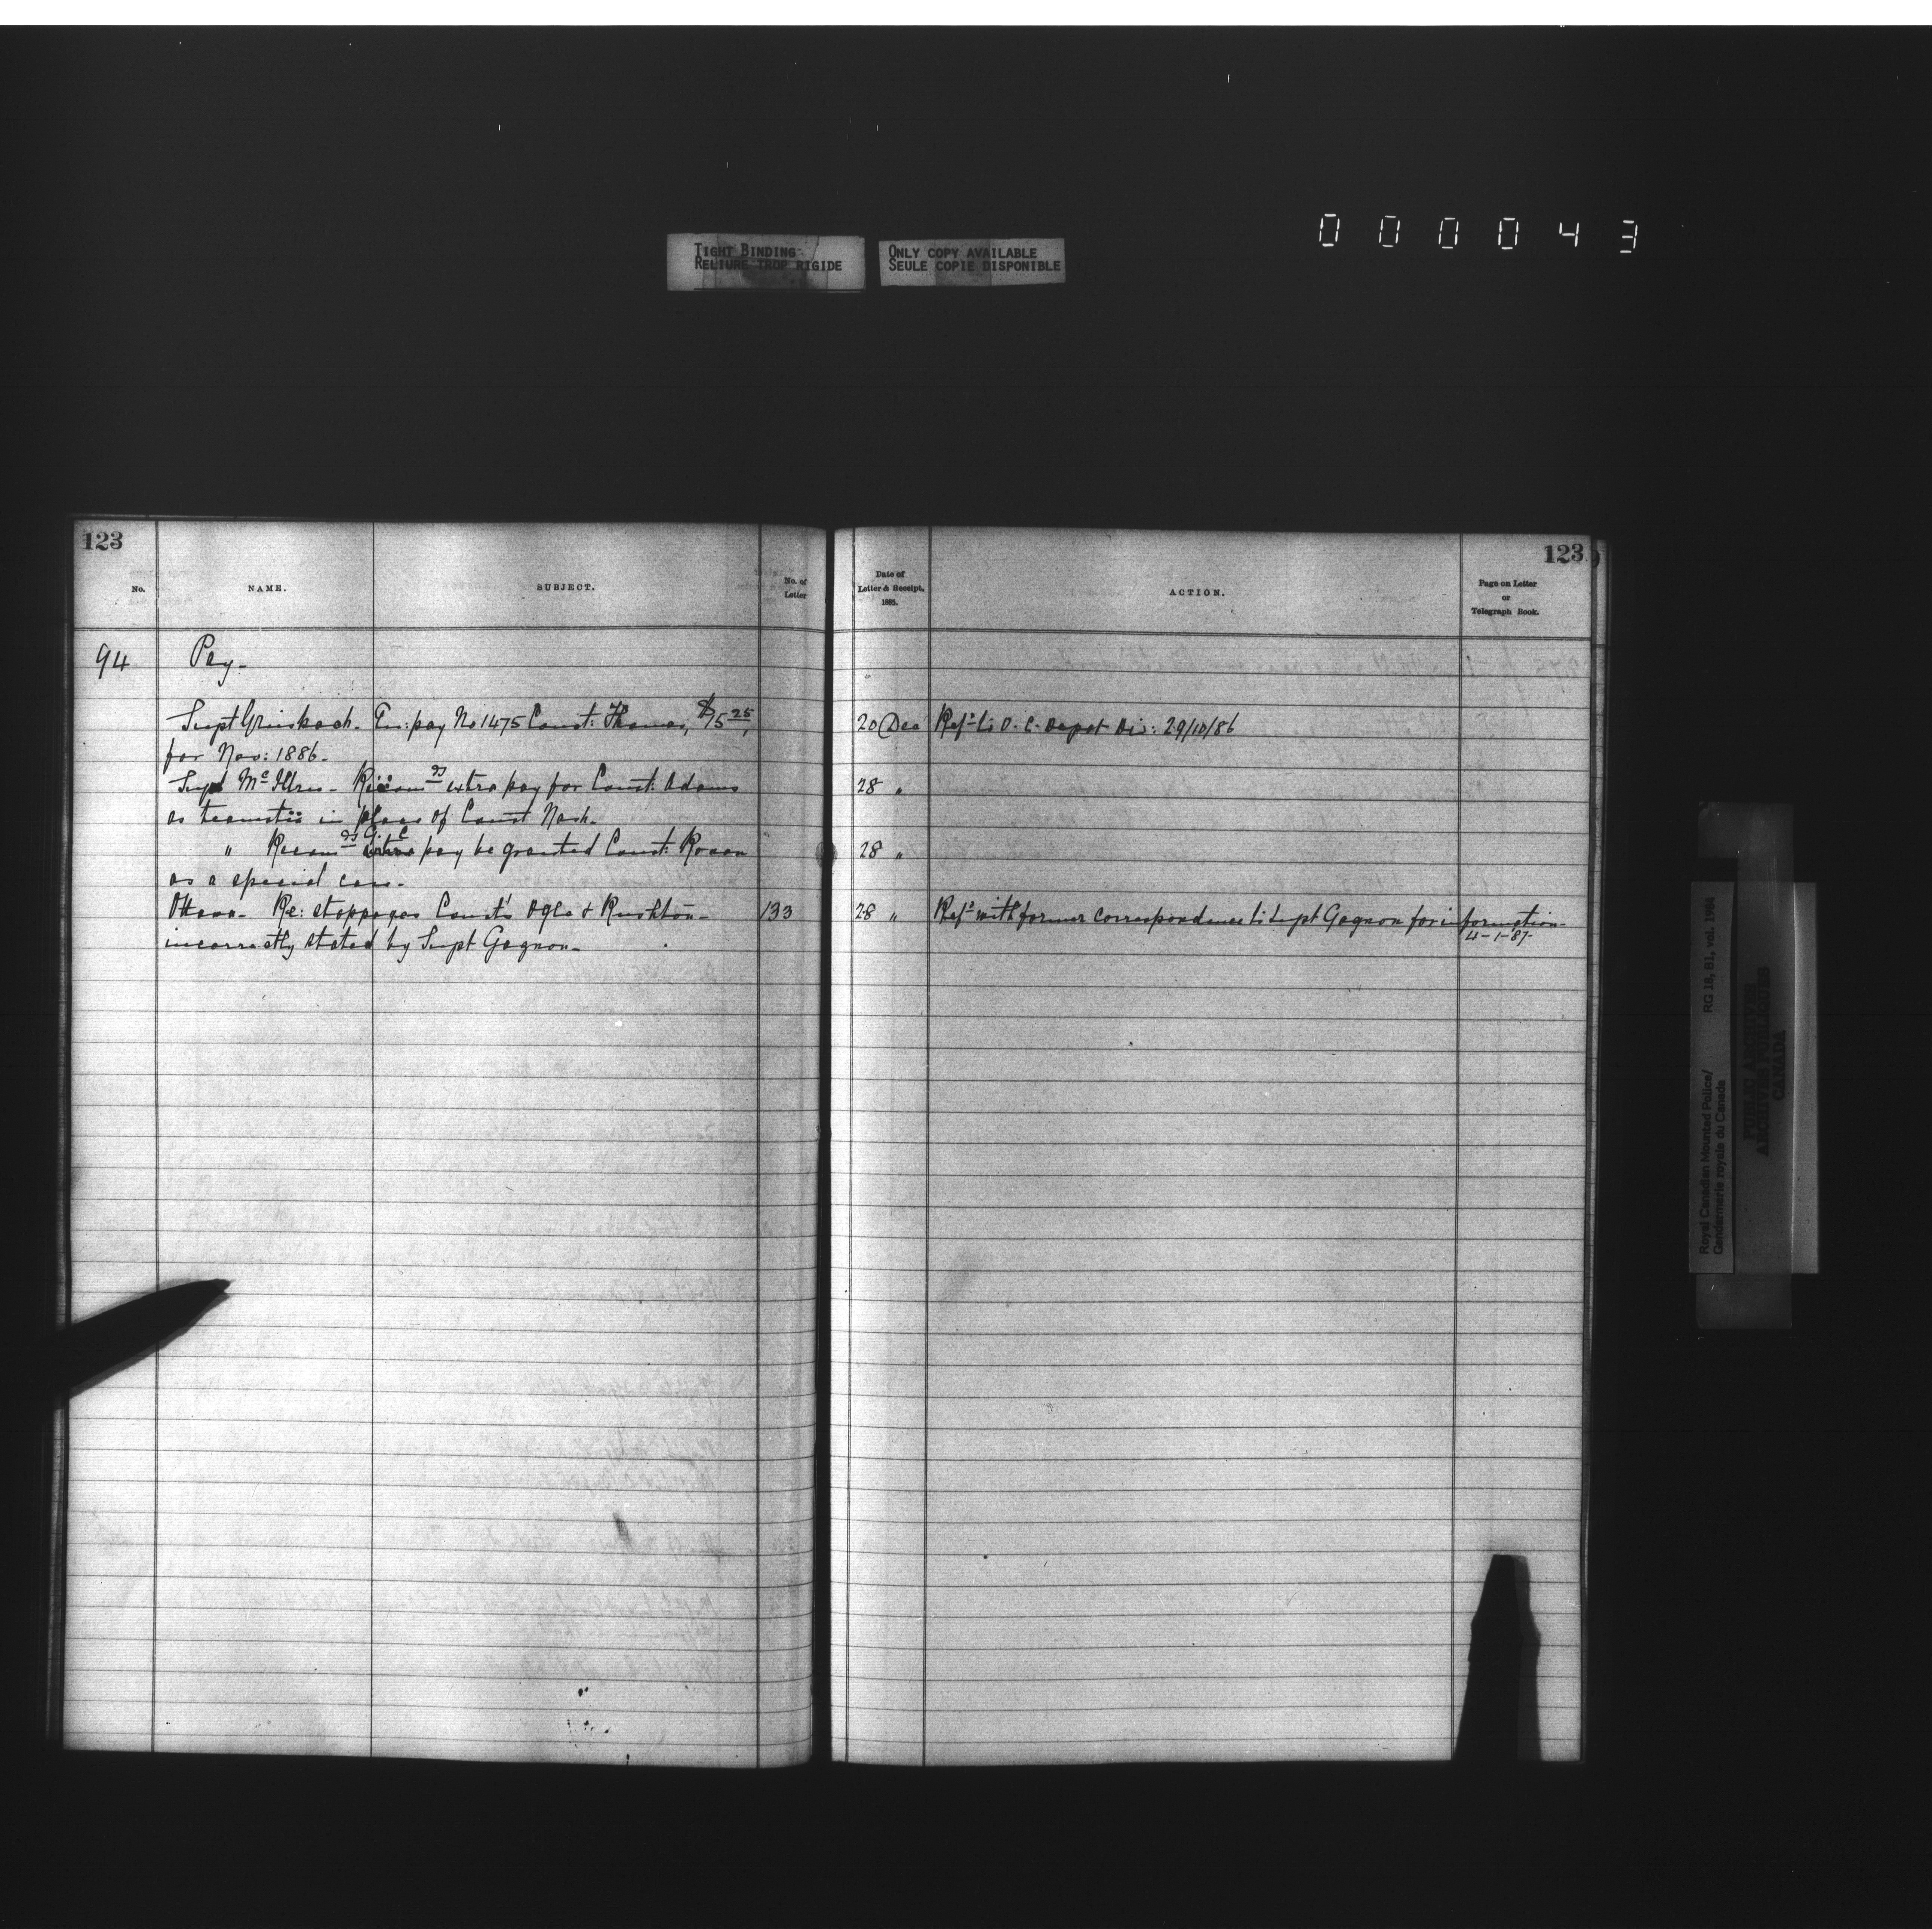 000043
TIGHT BINDING
RELIURE TROP RIGIDE
ONLY COPY AVAILABLE
SEULE COPIE DISPONIBLE
123
No.
NAME.
SUBJECT.
No. of
Letter
94
Pay-
Supt Griesbach. En: pay No 1475 Const: Thomas,
for Nov: 1886-
Supt Mc Illree - Recomds extra pay for Const: Adams
as teamster in place of Const Nash.
" Recomds extra pay be granted Const: Rowan
as a special case.
Ottawa- Re: stoppages Const's Ogle & Rushton- 133
incorrectly stated by Supt Gagnon-
123
Date of
Letter & Receipt,
1885.
ACTION.
Page on Letter
or
Telegraph Book.
20 Dec Refd to O. C. Depot Div: 29/10/86
28 "
28 "
28 " Refd with former correspondence to Supt Gagnon for information-
4-1-87-
Royal Canadian Mounted Police/
Gendarmerie royale du Canada
RG 18, B1, vol. 1984
PUBLIC ARCHIVES
ARCHIVES PUBLIQUES
CANADA